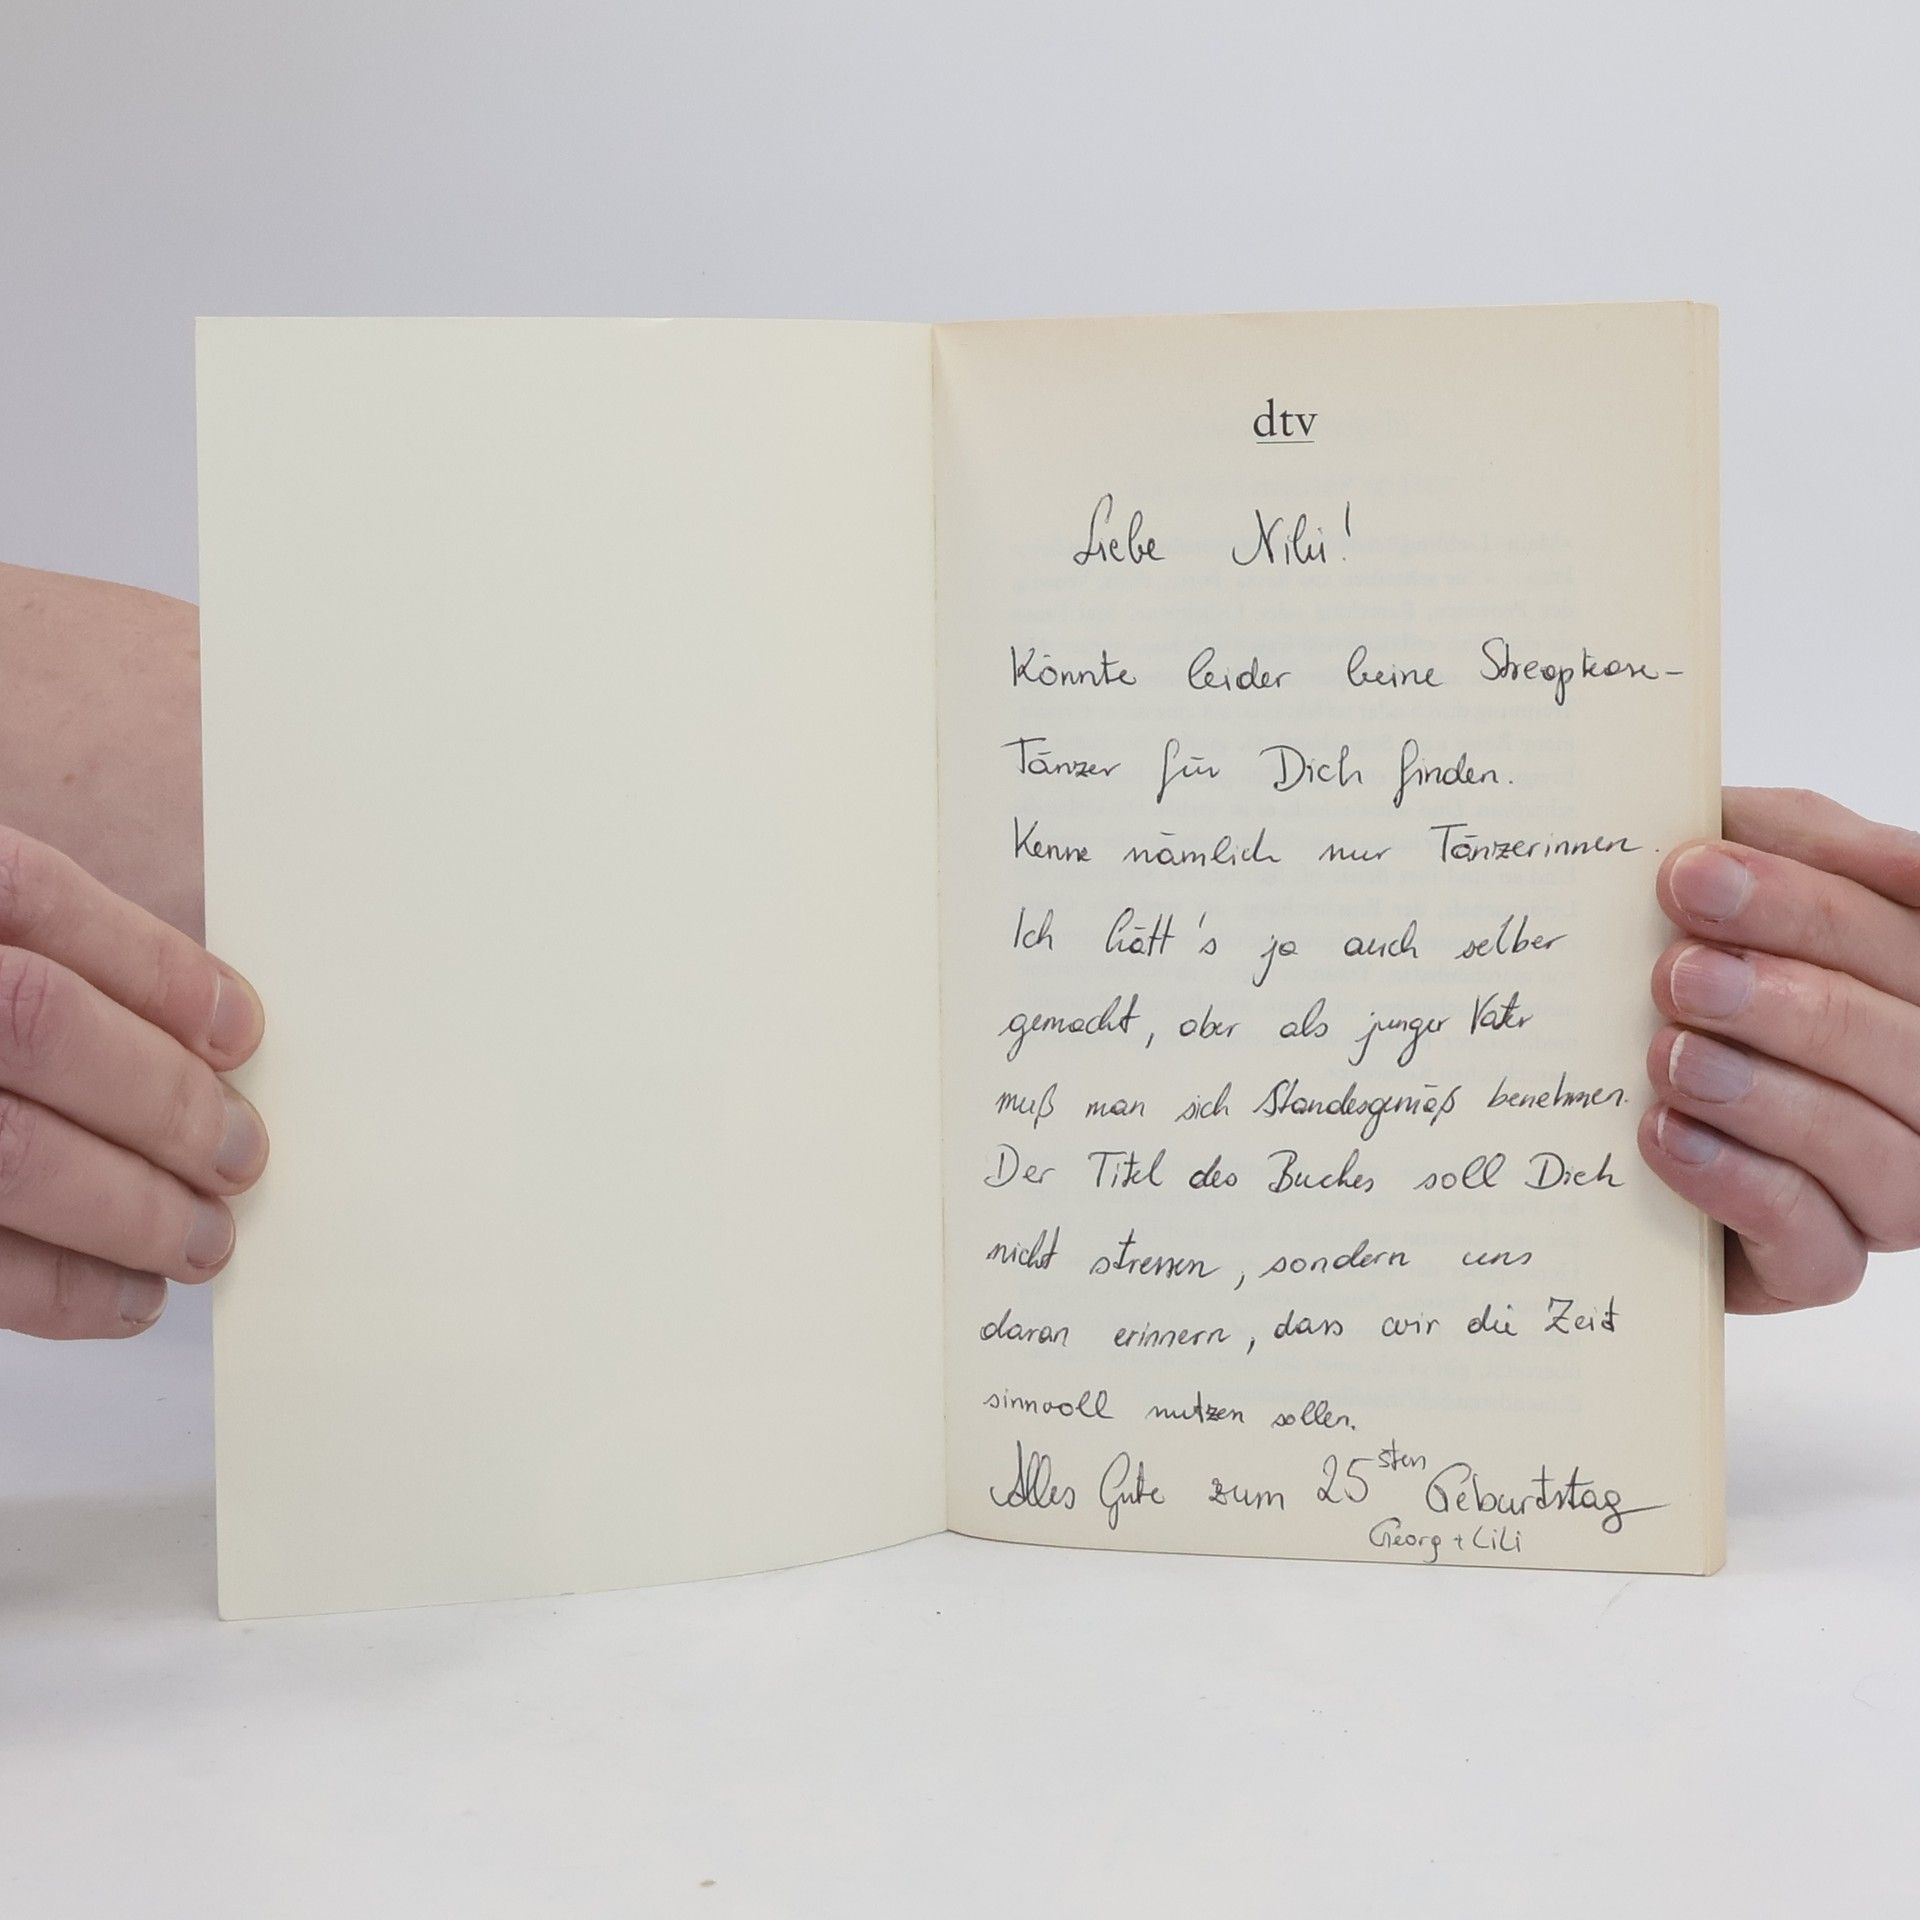 dtv
Liebe Nilu!
Könnte leider keine
Tänzer für Dich finden.
Kenne nämlich nur Tänzerinnen.
Ich hätt's ja auch selber
gemacht, aber als junger Vater
muß man sich Standesgemäß benehmen.
Der Titel des Buches soll Dich
nicht stressen, sondern uns
daran erinnern, dass wir die Zeit
sinnvoll nutzen sollen.
Alles Gute zum 25sten Geburtstag
Georg + Lili